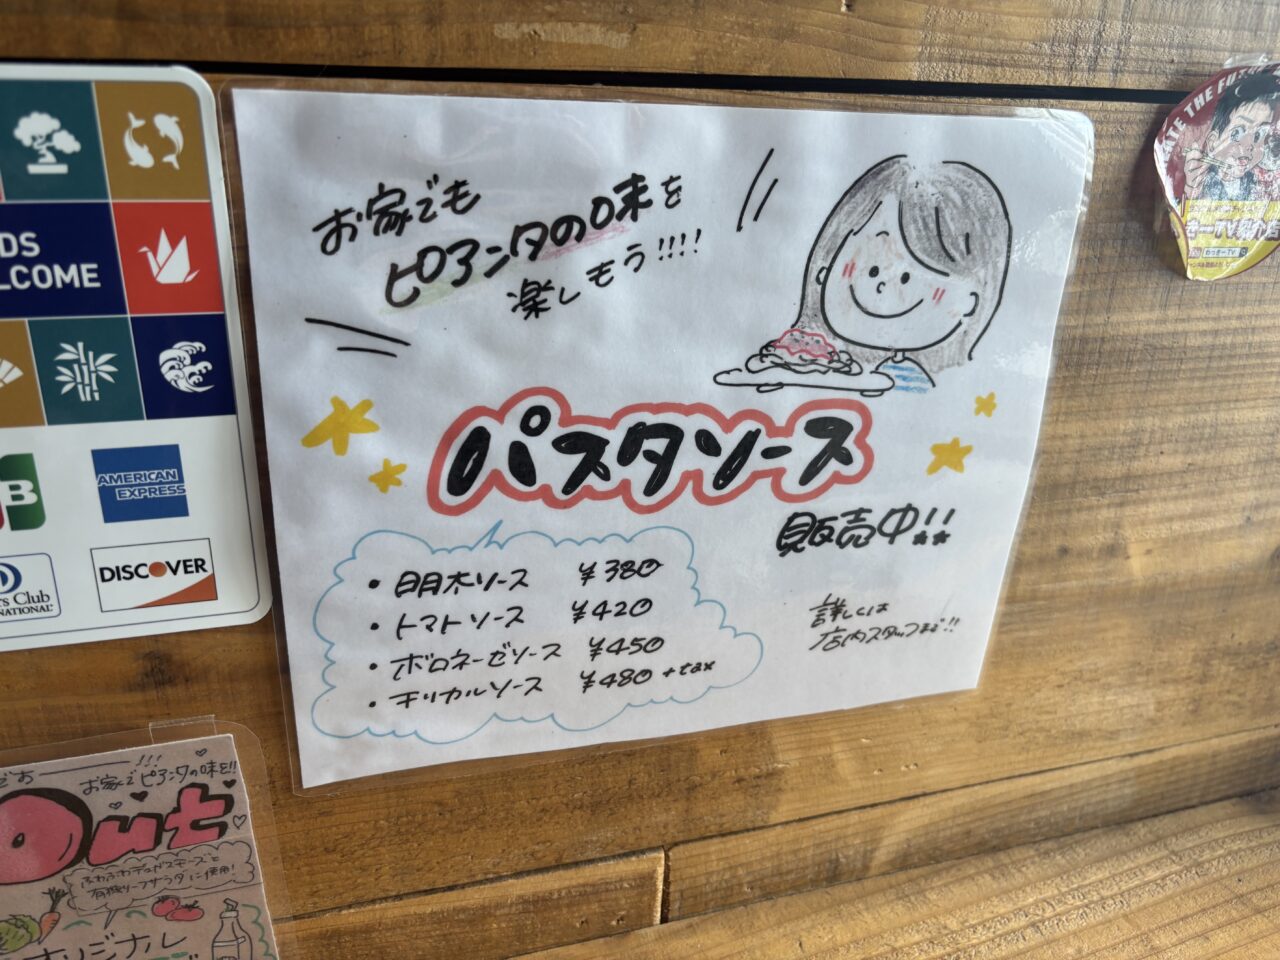 お家でも
ピアンタの味を
楽しもう!!!!
パスタソース
販売中!!
・明太ソース ¥380
・トマトソース ¥420
・ボロネーゼソース ¥450
・キリカルソース ¥480 +tax
詳しくは
店内スタッフまで!!
LCOME
AMERICAN
EXPRESS
DISCOVER
rs Club
NATIONAL
お家でピアンタの味を!!
Out
ふわふわデュガスチーズと
有機リーフサラダに使用!
オリジナル
ATE THE FU